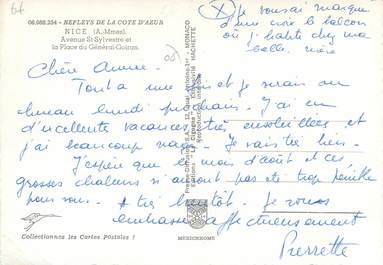 06.088.354 - REFLETS DE LA COTE D'AZUR
NICE (A.-Mmes).
Avenue St-Sylvestre et
la Place du Général-Goiran.
X Je vous ai marqué
d'une croix le balcon
où j'habite chez ma
belle mère
Chère Annie.
Tout à une fin et je serai au
bureau lundi prochain. J'ai eu
d'excellente vacances très ensoleillées et
j'ai beaucoup nagé. Je vais très bien.
J'espère que le mois d'août et ces
grosses chaleurs n'auront pas été trop pénible
pour vous. A très bientôt. Je vous
embrasse affectueusement
Pierrette
Collectionnez les Cartes Postales !
MEXICHROME